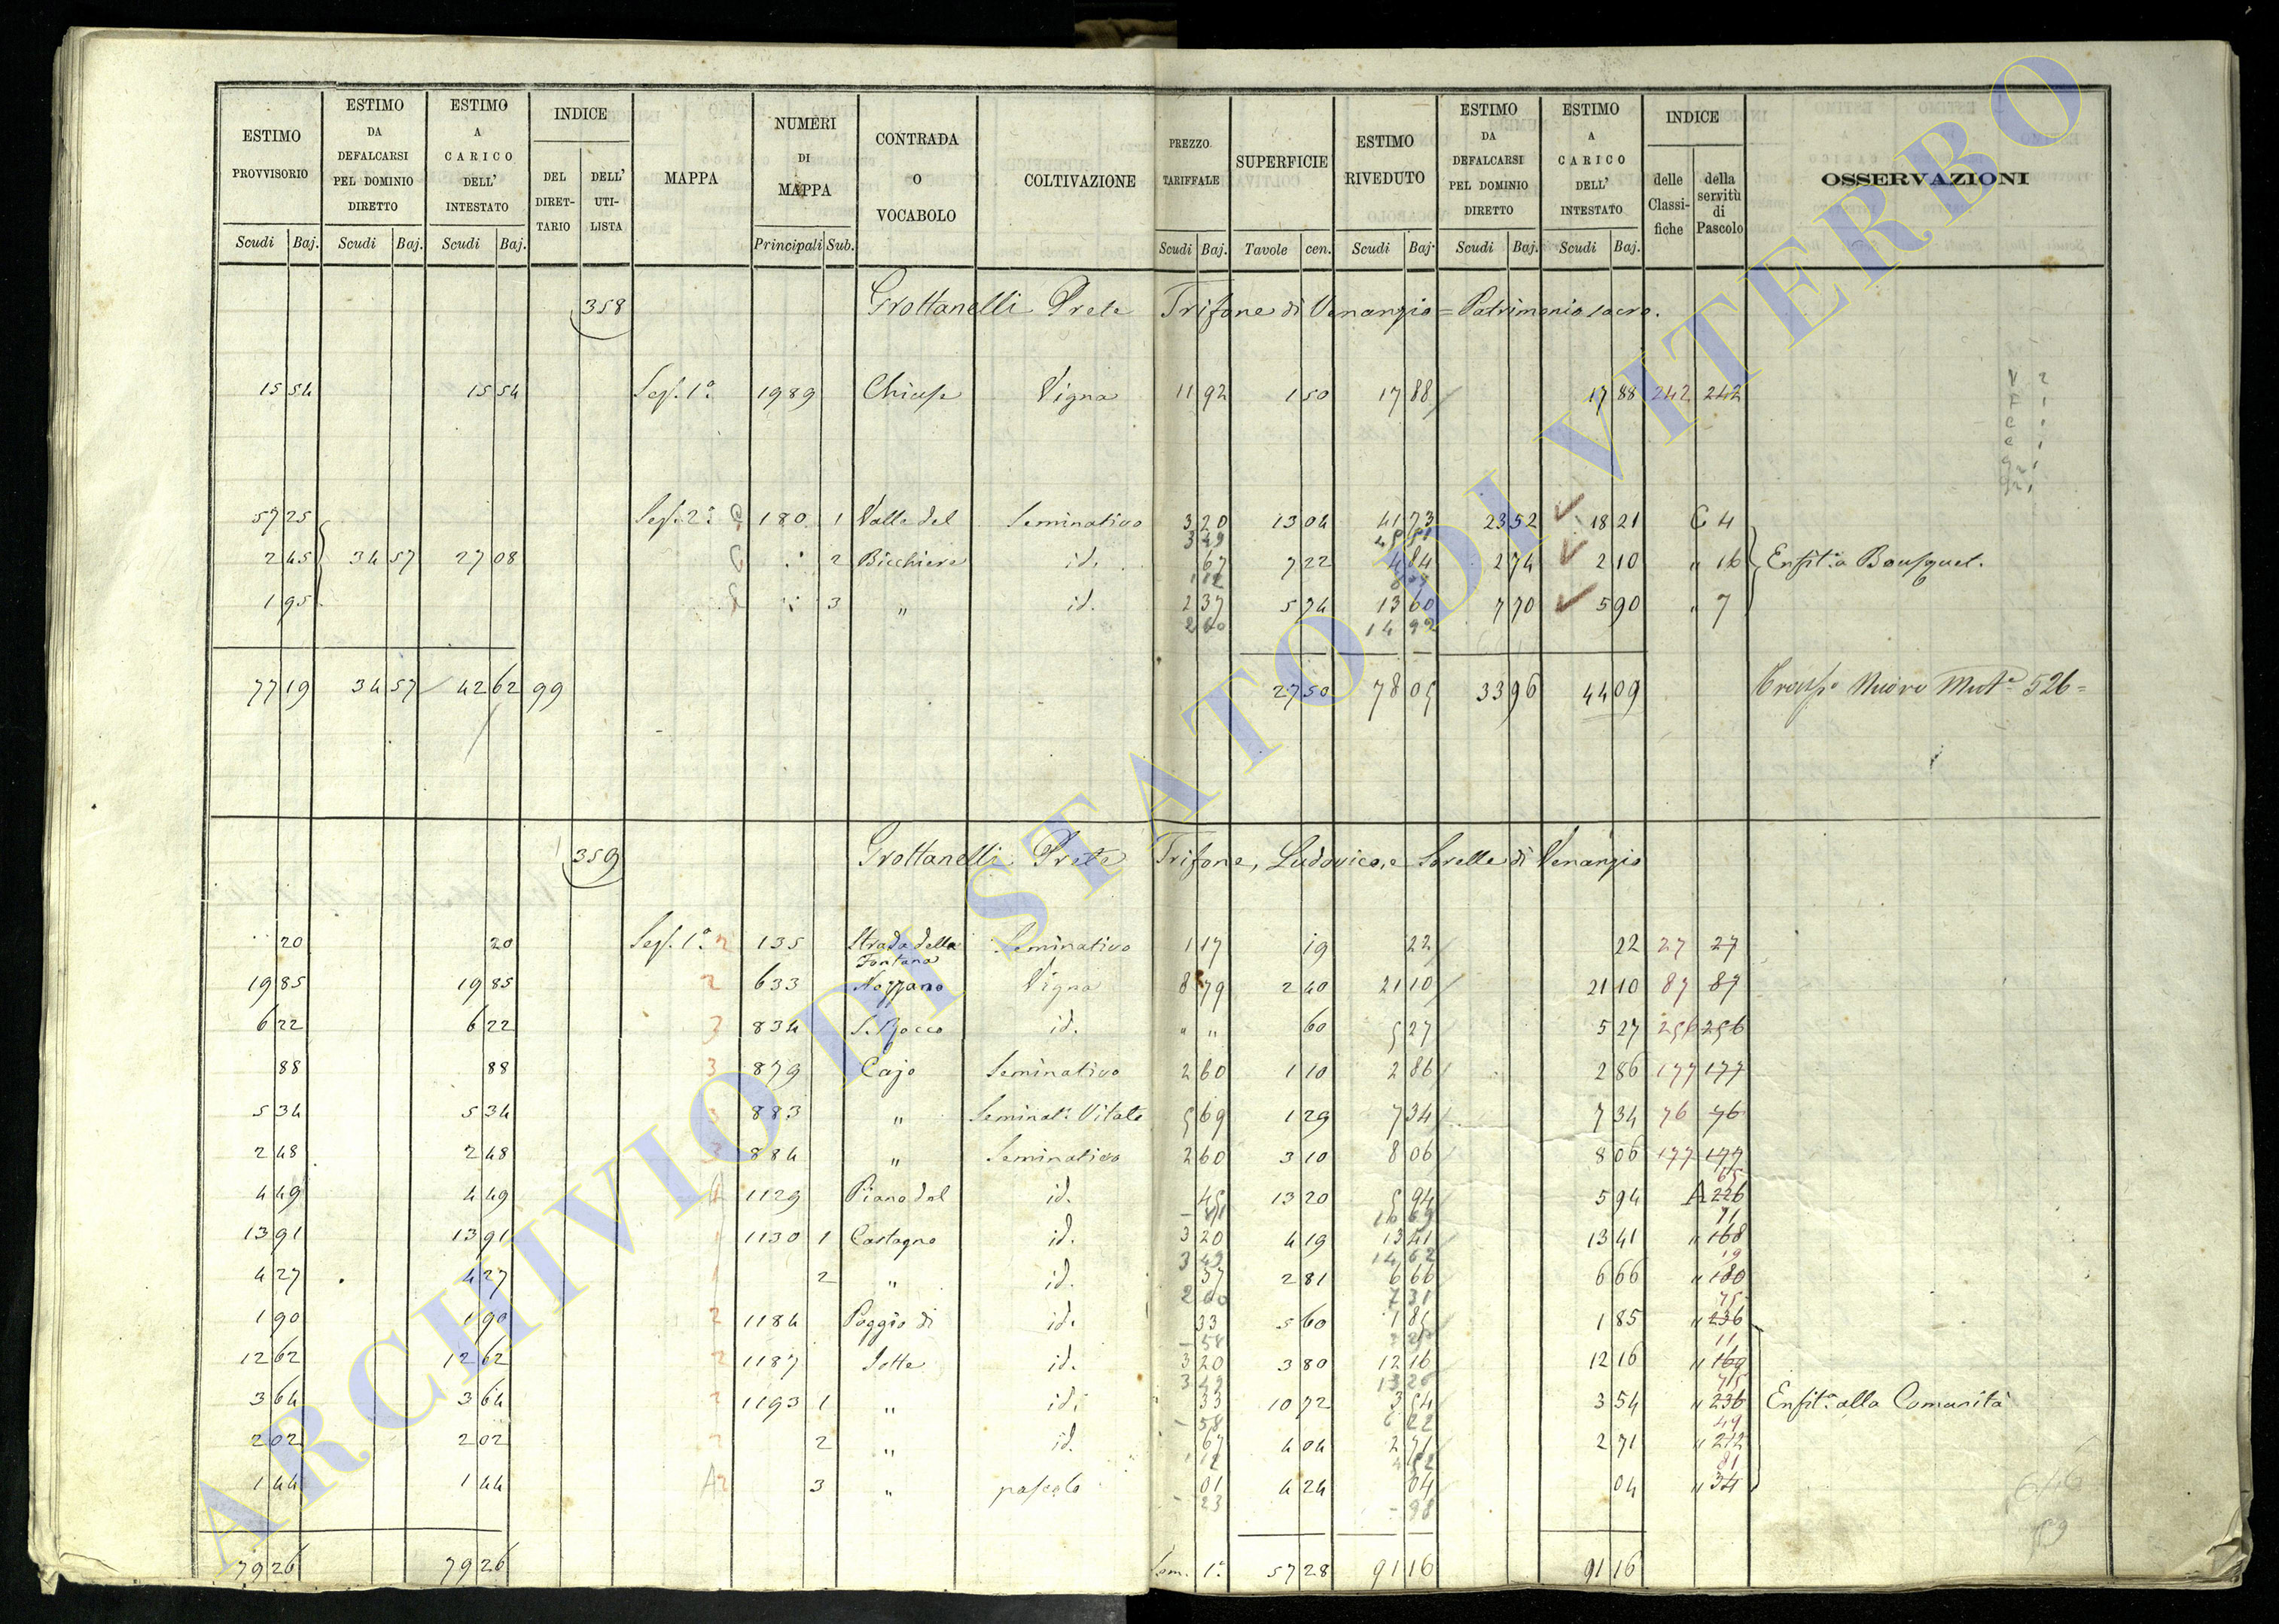 ESTIMO PROVVISORIO
ESTIMO DA DEFALCARSI PEL DOMINIO DIRETTO
ESTIMO A CARICO DELL' INTESTATO
INDICE
DEL DIRET-TARIO
DELL' UTI-LISTA
MAPPA
NUMERI DI MAPPA
CONTRADA O VOCABOLO
COLTIVAZIONE
PREZZO TARIFFALE
SUPERFICIE
ESTIMO RIVEDUTO
ESTIMO DA DEFALCARSI PEL DOMINIO DIRETTO
ESTIMO A CARICO DELL' INTESTATO
INDICE
delle Classi-fiche
della servitù di Pascolo
OSSERVAZIONI
Scudi Baj. Scudi Baj. Scudi Baj. Principali Sub. Scudi Baj. Tavole cen. Scudi Baj. Scudi Baj. Scudi Baj.
358 Grottanelli Prete Trifone di Venanzio = Patrimonio sacro.
15 54 15 54 Sez. 1a 1989 Chiuse Vigna 11 92 1 50 17 88 17 88 242 242
57 25 Sez. 2a 180 1 Valle del Seminativo 3 20 13 04 41 73 23 52 18 21 C 4
3 49 45 51
2 45 34 57 27 08 2 Bicchiere id. 67 7 22 4 84 2 74 2 10 " 16 Enfit. a Bousquet.
1 95 3 " id. 2 37 5 74 13 60 7 70 5 90 " 7
2 60 14 92
77 19 34 57 42 62 99 27 50 78 05 33 96 44 09 Trasp. Nuovo Mut. 526 =
359 Grottanelli Prete Trifone, Ludovico, e Sorelle di Venanzio
20 20 Sez. 1a 2 135 Strada della Fontana Seminativo 1 17 19 22 22 27 27
19 85 19 85 2 633 Nozzano Vigna 8 79 2 40 21 10 21 10 87 87
6 22 6 22 3 834 S. Rocco id. " " 60 5 27 5 27 256 256
88 88 3 879 Cajo Seminativo 2 60 1 10 2 86 2 86 177 177
5 34 5 34 3 883 " Seminat. Vitato 5 69 1 29 7 34 7 34 76 76
2 48 2 48 3 884 " Seminativo 2 60 3 10 8 06 8 06 177 177
65
4 49 4 49 1129 Piano del id. 45 13 20 5 94 5 94 A 226
71
13 91 13 91 1130 1 Castagno id. 3 20 4 19 13 41 13 41 " 168
3 49 14 62 19
4 27 4 27 2 " id. 37 2 81 6 66 6 66 " 180
2 60 7 31 75
1 90 1 90 2 1184 Poggio di id. 33 5 60 1 85 1 85 " 236
- 58 11
12 62 12 62 2 1187 Sotte id. 3 20 3 80 12 16 12 16 " 169
3 49 13 26 75
3 64 3 64 2 1193 1 " id. 33 10 72 3 54 3 54 " 236 Enfit. alla Comunità
- 58 6 22 49
2 02 2 02 2 " id. 67 4 04 2 71 2 71 " 212
1 12 4 52 81
1 44 1 44 A2 3 " pascolo 01 4 24 04 04 " 34
- 23 - 98
79 26 79 26 Som. 1a 57 28 91 16 91 16
ARCHIVIO DI STATO DI VITERBO